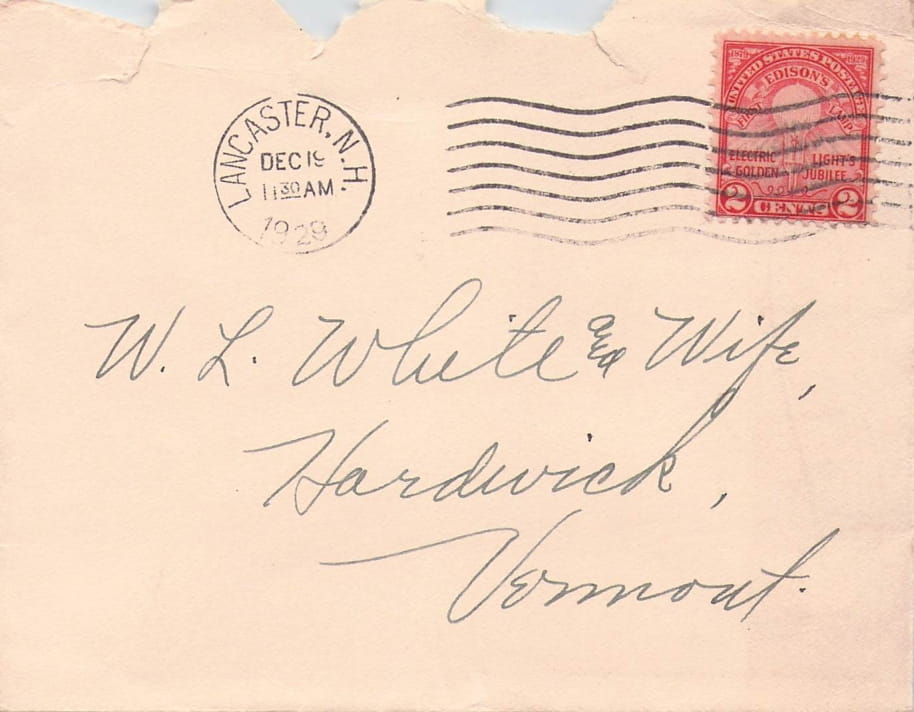 LANCASTER, N.H.
DEC 19
11 30 AM
1929
UNITED STATES POSTAGE
1879 1929
EDISON'S
FIRST LAMP
ELECTRIC LIGHT'S
GOLDEN JUBILEE
2 CENTS 2
W. L. White and Wife,
Hardwick,
Vermont.